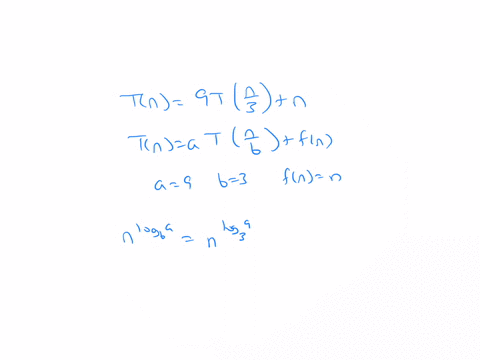 T(n) = 9T(n/3) + n
T(n) = a T(n/b) + f(n)
a = 9 b = 3 f(n) = n
n^{log_b a} = n^{log_3 9}